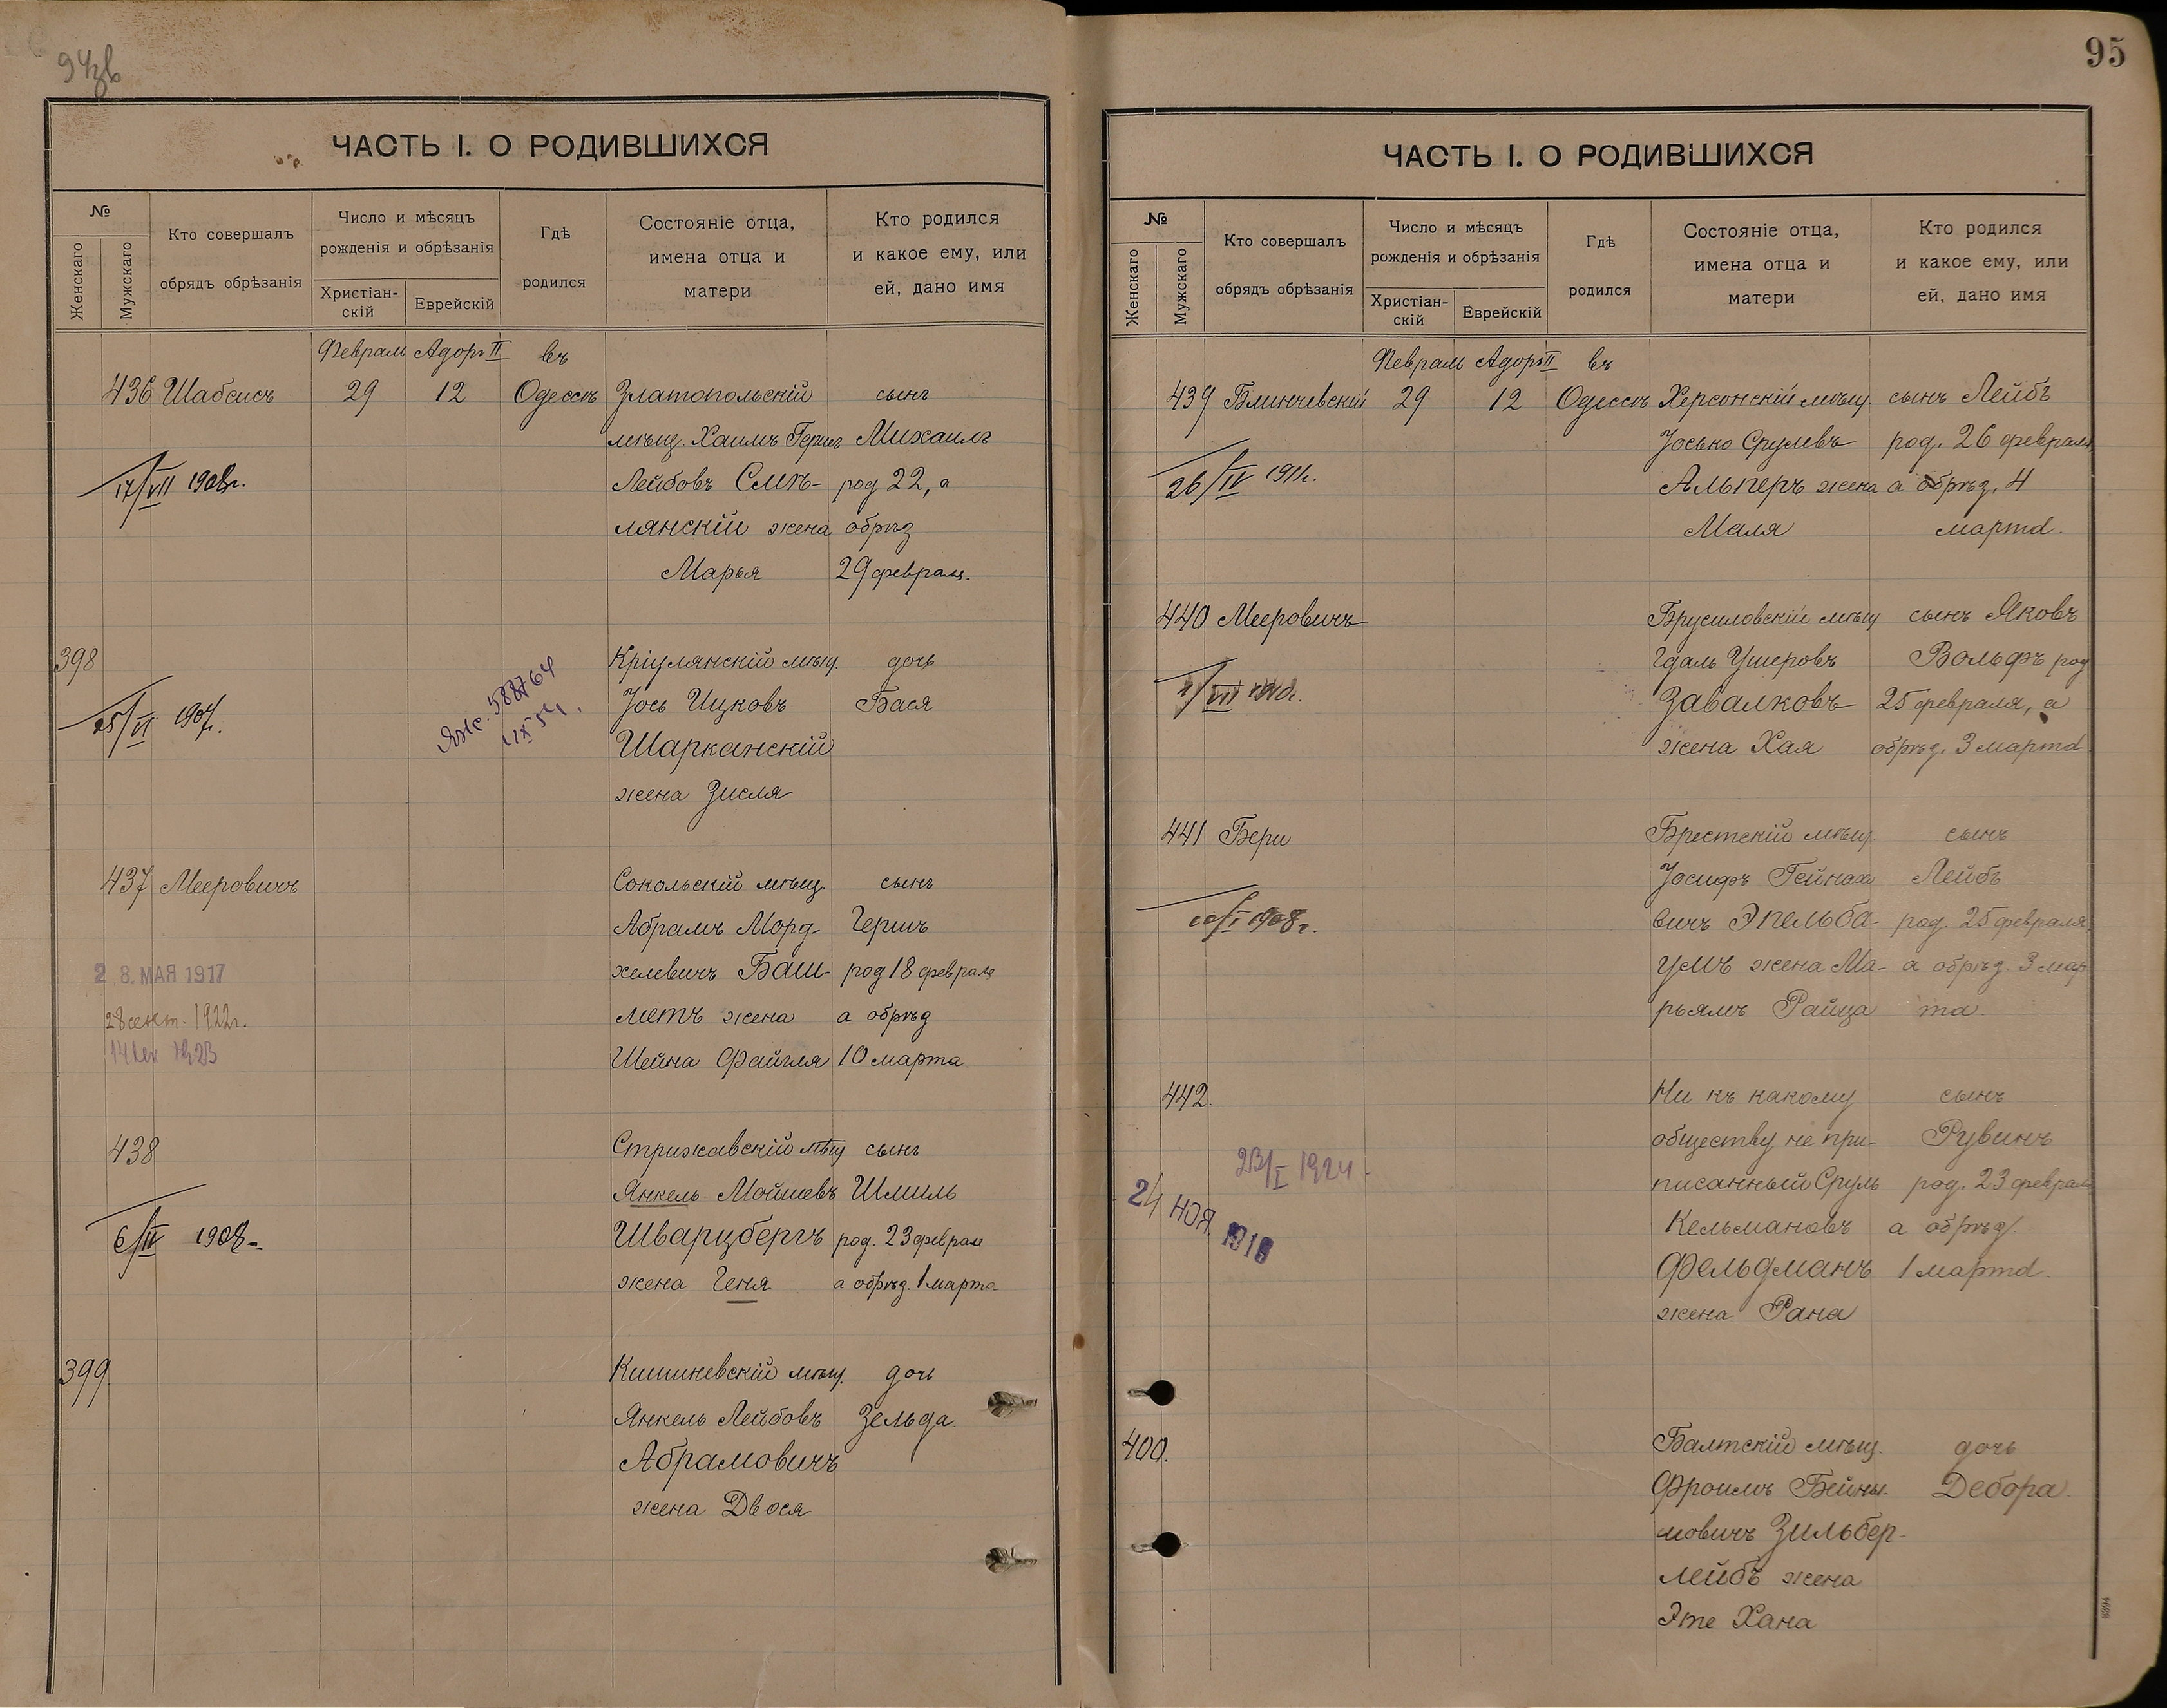 94зв
ЧАСТЬ I. О РОДИВШИХСЯ
№
Женскаго
Мужскаго
Кто совершалъ
обрядъ обрѣзанія
Число и мѣсяцъ
рожденія и обрѣзанія
Христіан-
скій
Еврейскій
Гдѣ
родился
Состояніе отца,
имена отца и
матери
Кто родился
и какое ему, или
ей, дано имя
Февраль Адоръ II въ
436 Шабсисъ 29 12 Одессѣ Златопольскій сынъ
мѣщ. Хаимъ Гершъ Михаилъ
17/VII 1908г. Лейбовъ Смѣ- род 22, а
лянскій жена обрѣз
Марья 29 феврал.
398 Кріулянскій мѣщ. дочь
25/VI 1907г. Іось Ицковъ Бася
Шарканскій
жена Зисля
437 Мееровичъ Сокольскій мѣщ. сынъ
АбрамъМорд- Гершъ
2 8. МАЯ 1917 хелевичъ Баш- род 18 феврал
28 сент. 1922г. метъ жена а обрѣз
Шейна Файгля 10 марта.
438 Стрижавскій мѣщ сынъ
Янкель Мойшевъ Шмиль
6/IV 1908 Шварцбергъ род. 23 феврал
жена Геня а обрѣз. 1 марта
399. Кишиневскій мѣщ. дочь
Янкель Лейбовъ Зельда.
Абрамовичъ
жена Двося
95
ЧАСТЬ I. О РОДИВШИХСЯ
№
Женскаго
Мужскаго
Кто совершалъ
обрядъ обрѣзанія
Число и мѣсяцъ
рожденія и обрѣзанія
Христіан-
скій
Еврейскій
Гдѣ
родился
Состояніе отца,
имена отца и
матери
Кто родился
и какое ему, или
ей, дано имя
Февраль Адоръ II въ
439 Блинчевскій 29 12 Одессѣ Херсонскій мѣщ. сынъ Лейбъ
Іосько Срулевъ род. 26 февраля
26/IV 1911г. Альперъ жена а обрѣз. 4
Маля марта.
440 Мееровичъ Брусиловскій мѣщ сынъ Яковъ
Гдаль Ушеровъ Вольфъ род
Завалковъ 25 февраля, а
жена Хая обрѣз. 3 марта
441 Бери Брестскій мѣщ. сынъ
Іосифъ Гейнахо Лейбъ
1908г. вичъ Эпельба- род. 25 февраля
умъ жена Ма- а обрѣз. 3 мар
рьямъ Райца та
442. Ни къ какому сынъ
обществу не при- Рувинъ
23/I 1924 писанный Сруль род. 23 феврал
24 НОЯ Кельмановъ а обрѣз
Фельдманъ 1 марта.
жена Рана
400. Балтскій мѣщ. дочь
Фроимъ Бейны- Дебора.
мовичъ Зильбер-
лейбъ жена
Эте Хана